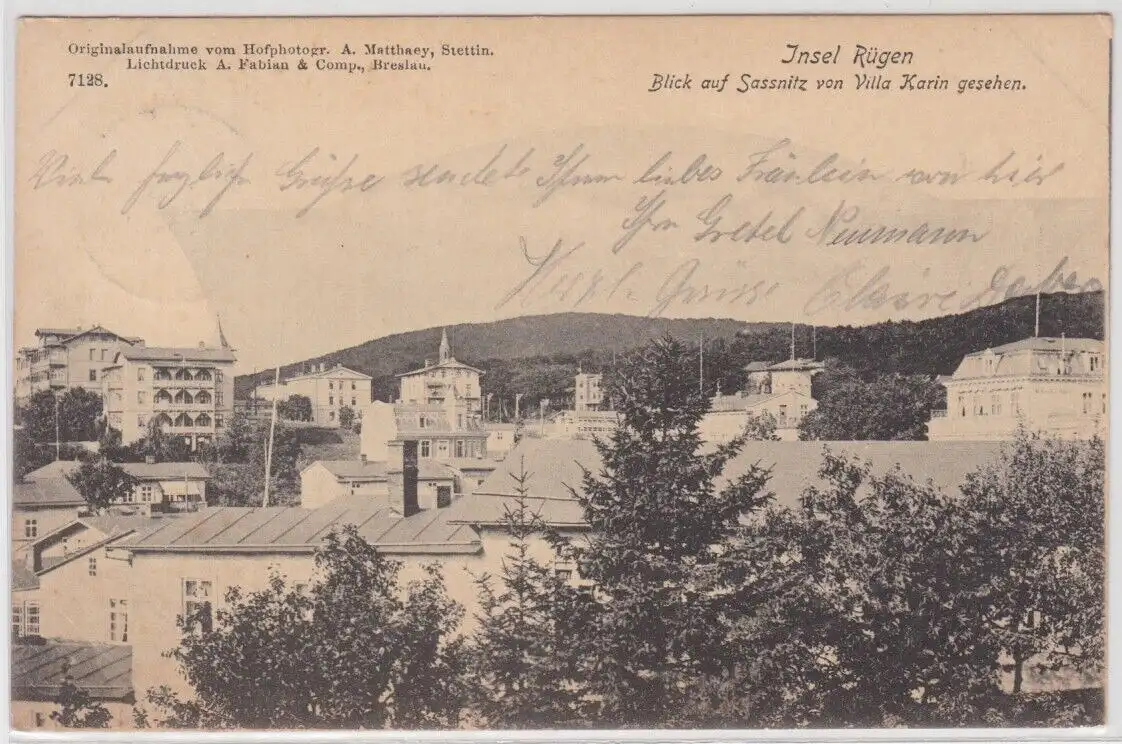 Originalaufnahme vom Hofphotogr. A. Matthaey, Stettin.
Lichtdruck A. Fabian & Comp., Breslau.
7128.
Insel Rügen
Blick auf Sassnitz von Villa Karin gesehen.
Viele Grüsse sendet Ihnen liebes Fräulein von hier
Ihre Gretel Neumann
Herzl. Grüsse Claire